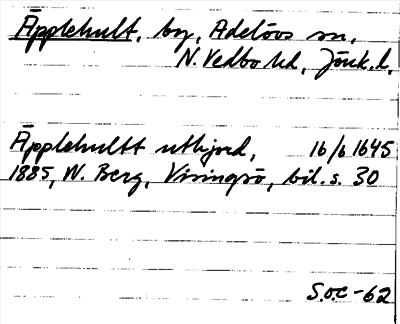 Äpplehult, by, Adelövs sn,
N. Vedbo hd, Jönk. l.
Äpplehultt uthjord, 16/6 1645
1885, W. Berg, Visingsö, bil. s. 30
S.O.C -62